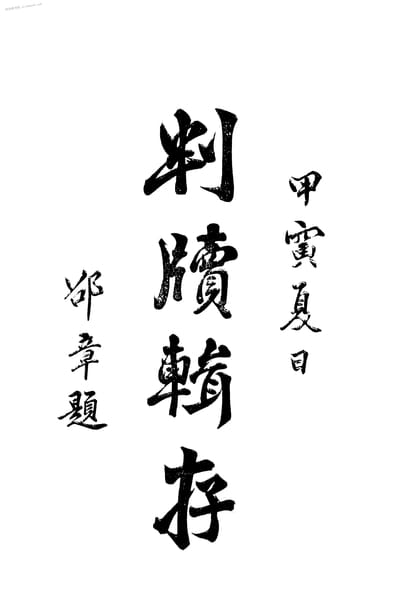 甲寅夏日
判牘輯存
邵章題